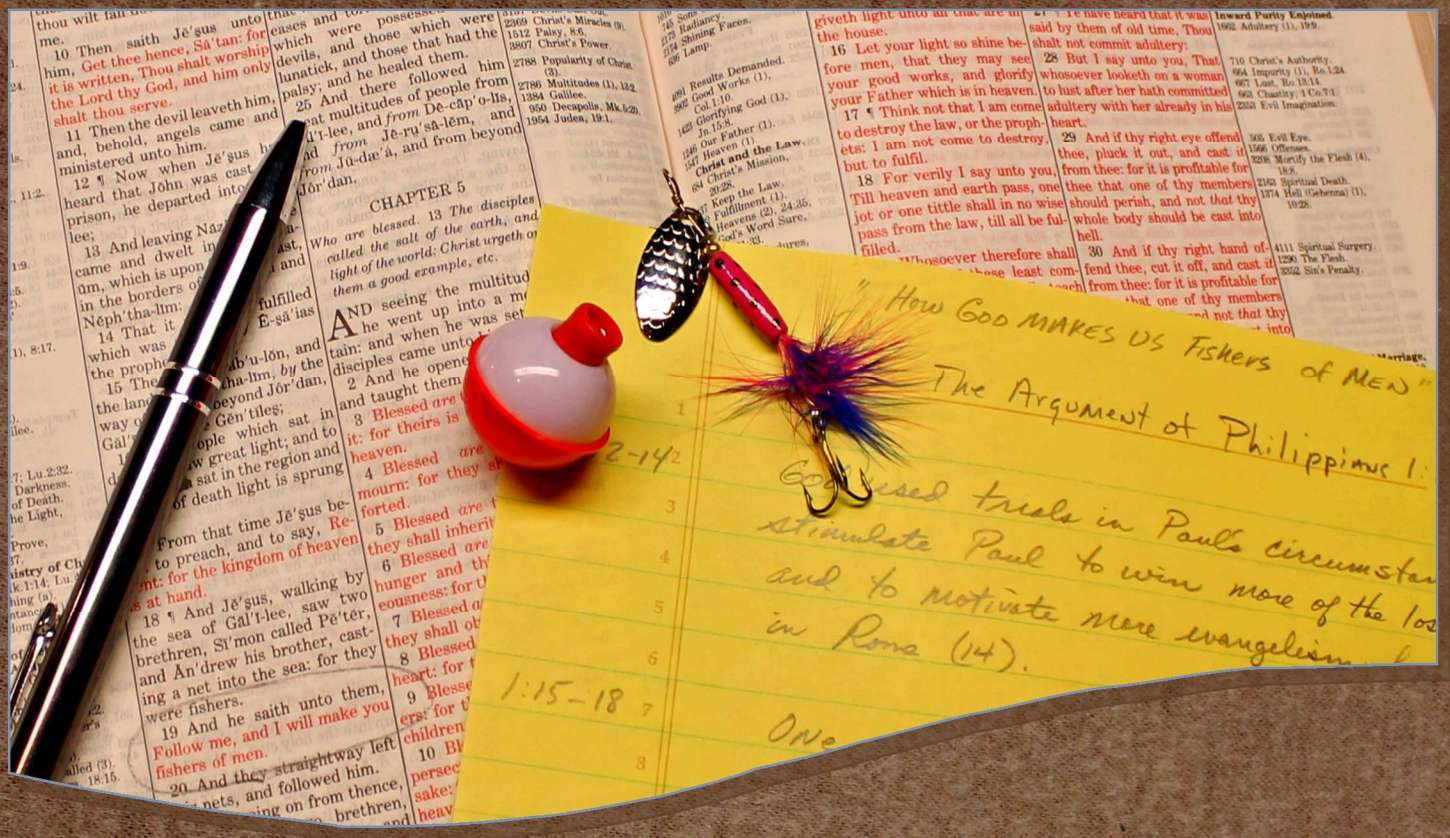 thou wilt fall
me.
10 Then saith Jē'ṣus unto
him, Get thee hence, Sā'tan: for
it is written, Thou shalt worship
the Lord thy God, and him only
shalt thou serve.
11 Then the devil leaveth him,
and, behold, angels came and
ministered unto him.
12 ¶ Now when Jē'ṣus
heard that Jŏhn was cast
prison, he departed into
lee;
13 And leaving Năz
came and dwelt in
um, which is upon
in the borders of
Nĕph'tha-lĭm:
14 That it fulfilled
which was E-ṣā'ias
the prophe
15 The
the land beyond Jôr'dan,
way o Ġĕn'tīleṣ;
ople which sat in
w great light; and to
sat in the region and
of death light is sprung
From that time Jē'ṣus be-
to preach, and to say, Re-
ent: for the kingdom of heaven
is at hand.
18 ¶ And Jē'ṣus, walking by
the sea of Găl'ĭ-lee, saw two
brethren, Sī'mon called Pē'tẽr,
and Ăn'drew his brother, cast-
ing a net into the sea: for they
were fishers.
19 And he saith unto them,
Follow me, and I will make you
fishers of men.
20 And they straightway left
nets, and followed him.
ing on from thence,
brethren,
which were possessed
devils, and those which were
lunatick, and those that had the
palsy; and he healed them.
25 And there followed him
great multitudes of people from
ĭ-lee, and from Dē-căp'o-lĭs,
and from Jē-ru̇'sā-lĕm, and
from Jū-dæ'à, and from beyond
Jôr'dan.
CHAPTER 5
Who are blessed. 13 The disciples
called the salt of the earth, and
light of the world: Christ urgeth
them a good example, etc.
AND seeing the multitud
he went up into a m
tain: and when he was set
disciples came unto
2 And he opene
and taught them
3 Blessed are
it: for theirs is
heaven.
4 Blessed are
mourn: for they s
forted.
5 Blessed are t
they shall inherit
6 Blessed are
hunger and th
eousness: for t
7 Blessed a
they shall ob
8 Blessed
heart: for t
9 Blesse
ers: for t
children
10 Bl
persec
sake:
heav
2369 Christ's Miracles (9),
1512 Palsy, 8:6.
3807 Christ's Power.
2788 Popularity of Christ
(3).
2786 Multitudes (1), 13:2.
1384 Galilee.
950 Decapolis, Mk.5:20.
1954 Judea, 19:1.
2173 Radiancy.
2174 Shining Faces.
636 Lamp.
4091 Results Demanded.
3902 Good Works (1),
Col.1:10.
1423 Glorifying God (1),
Jn.15:8.
1246 Our Father (1).
1547 Heaven (1).
Christ and the Law.
684 Christ's Mission,
20:28.
Keep the Law.
Fulfillment (1),
Heavens (2), 24:35.
God's Word Sure,
giveth light unto all that are in
the house.
16 Let your light so shine be-
fore men, that they may see
your good works, and glorify
your Father which is in heaven.
17 ¶ Think not that I am come
to destroy the law, or the proph-
ets: I am not come to destroy,
but to fulfil.
18 For verily I say unto you,
Till heaven and earth pass, one
jot or one tittle shall in no wise
pass from the law, till all be ful-
filled.
Whosoever therefore shall
these least com-
27 ¶ Ye have heard that it was
said by them of old time, Thou
shalt not commit adultery:
28 But I say unto you, That
whosoever looketh on a woman
to lust after her hath committed
adultery with her already in his
heart.
29 And if thy right eye offend
thee, pluck it out, and cast it
from thee: for it is profitable for
thee that one of thy members
should perish, and not that thy
whole body should be cast into
hell.
30 And if thy right hand of-
fend thee, cut it off, and cast it
from thee: for it is profitable for
that one of thy members
and not that thy
into
Inward Purity Enjoined.
1662 Adultery (1), 19:9.
710 Christ's Authority.
664 Impurity (1), Ro.1:24.
667 Lust, Ro.13:14.
663 Chastity, 1 Co.7:1.
2353 Evil Imagination.
505 Evil Eye.
1566 Offenses.
3208 Mortify the Flesh (4),
18:8.
2163 Spiritual Death.
1374 Hell (Gehenna) (1),
10:28.
4111 Spiritual Surgery.
1290 The Flesh.
3352 Sin's Penalty.
Marriage,
"How GOD MAKES US Fishers of MEN"
The Argument of Philippians 1:
1
2-14 2 God used trials in Paul's circumstan
3 stimulate Paul to win more of the los
4 and to motivate more evangelism
5 in Rome (14).
6
1:15-18 7 One
8